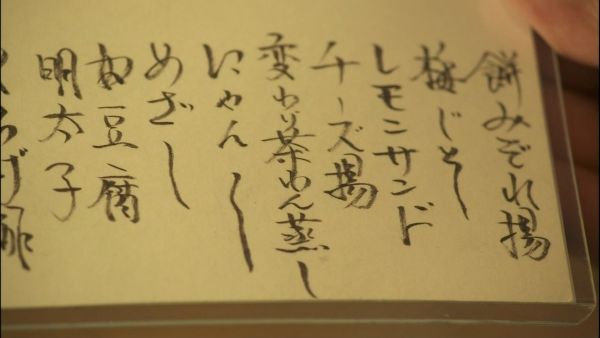 餅みぞれ揚
梅じそ
レモンサンド
チーズ揚
変わり茶わん蒸し
にゃん〱
めざし
奴豆腐
明太子
くらげ酢